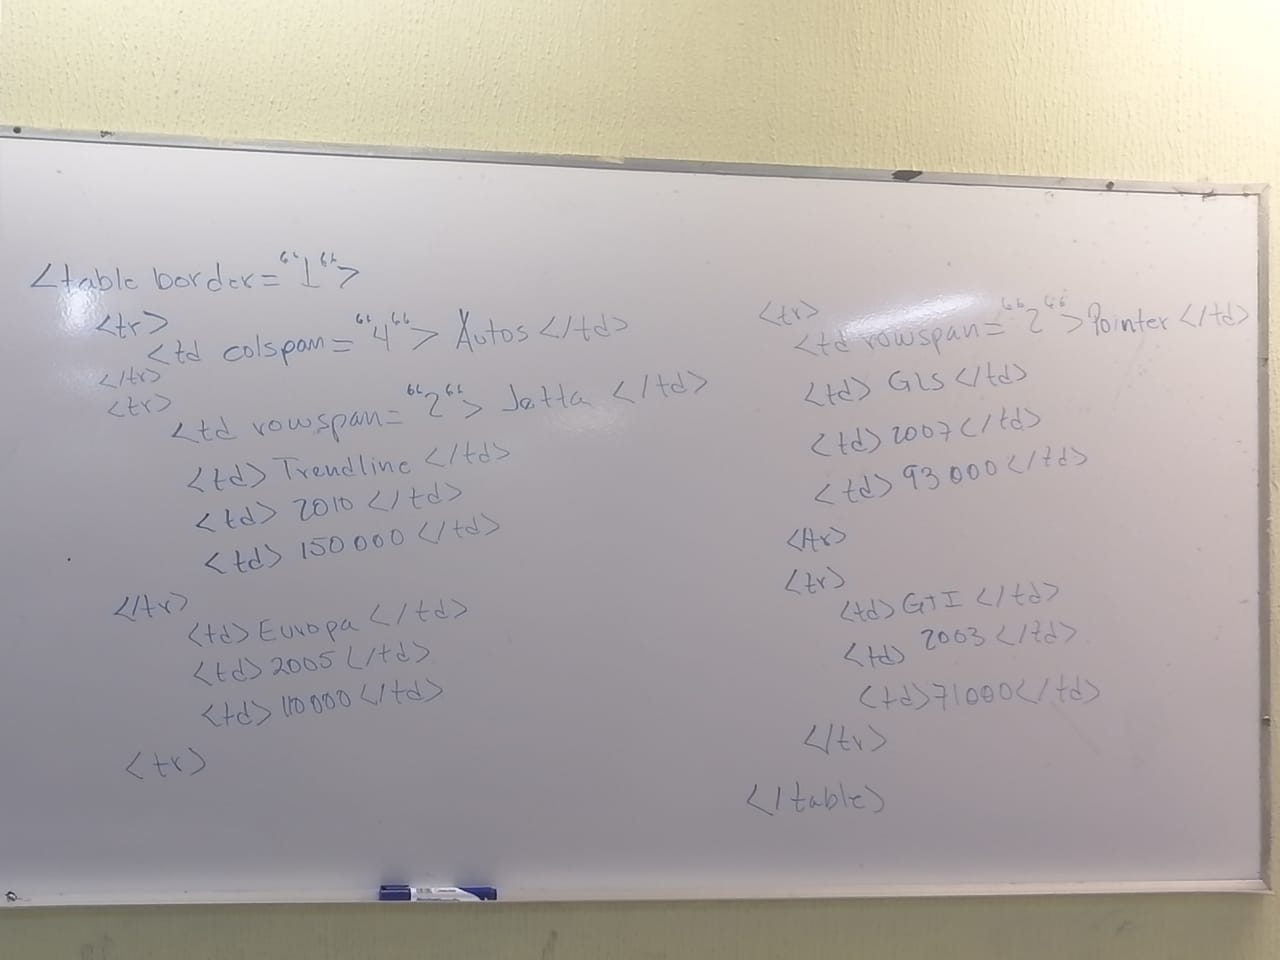 <table border="1">
<tr>
<td colspan="4"> Autos </td>
</tr>
<tr>
<td rowspan="2"> Jetta </td>
<td> Trendline </td>
<td> 2010 </td>
<td> 150 000 </td>
</tr>
<td> Europa </td>
<td> 2005 </td>
<td> 110000 </td>
<tr>
<tr>
<td rowspan="2"> Pointer </td>
<td> GLS </td>
<td> 2007 </td>
<td> 93 000 </td>
</tr>
<tr>
<td> GTI </td>
<td> 2003 </td>
<td> 71000 </td>
</tr>
</table>